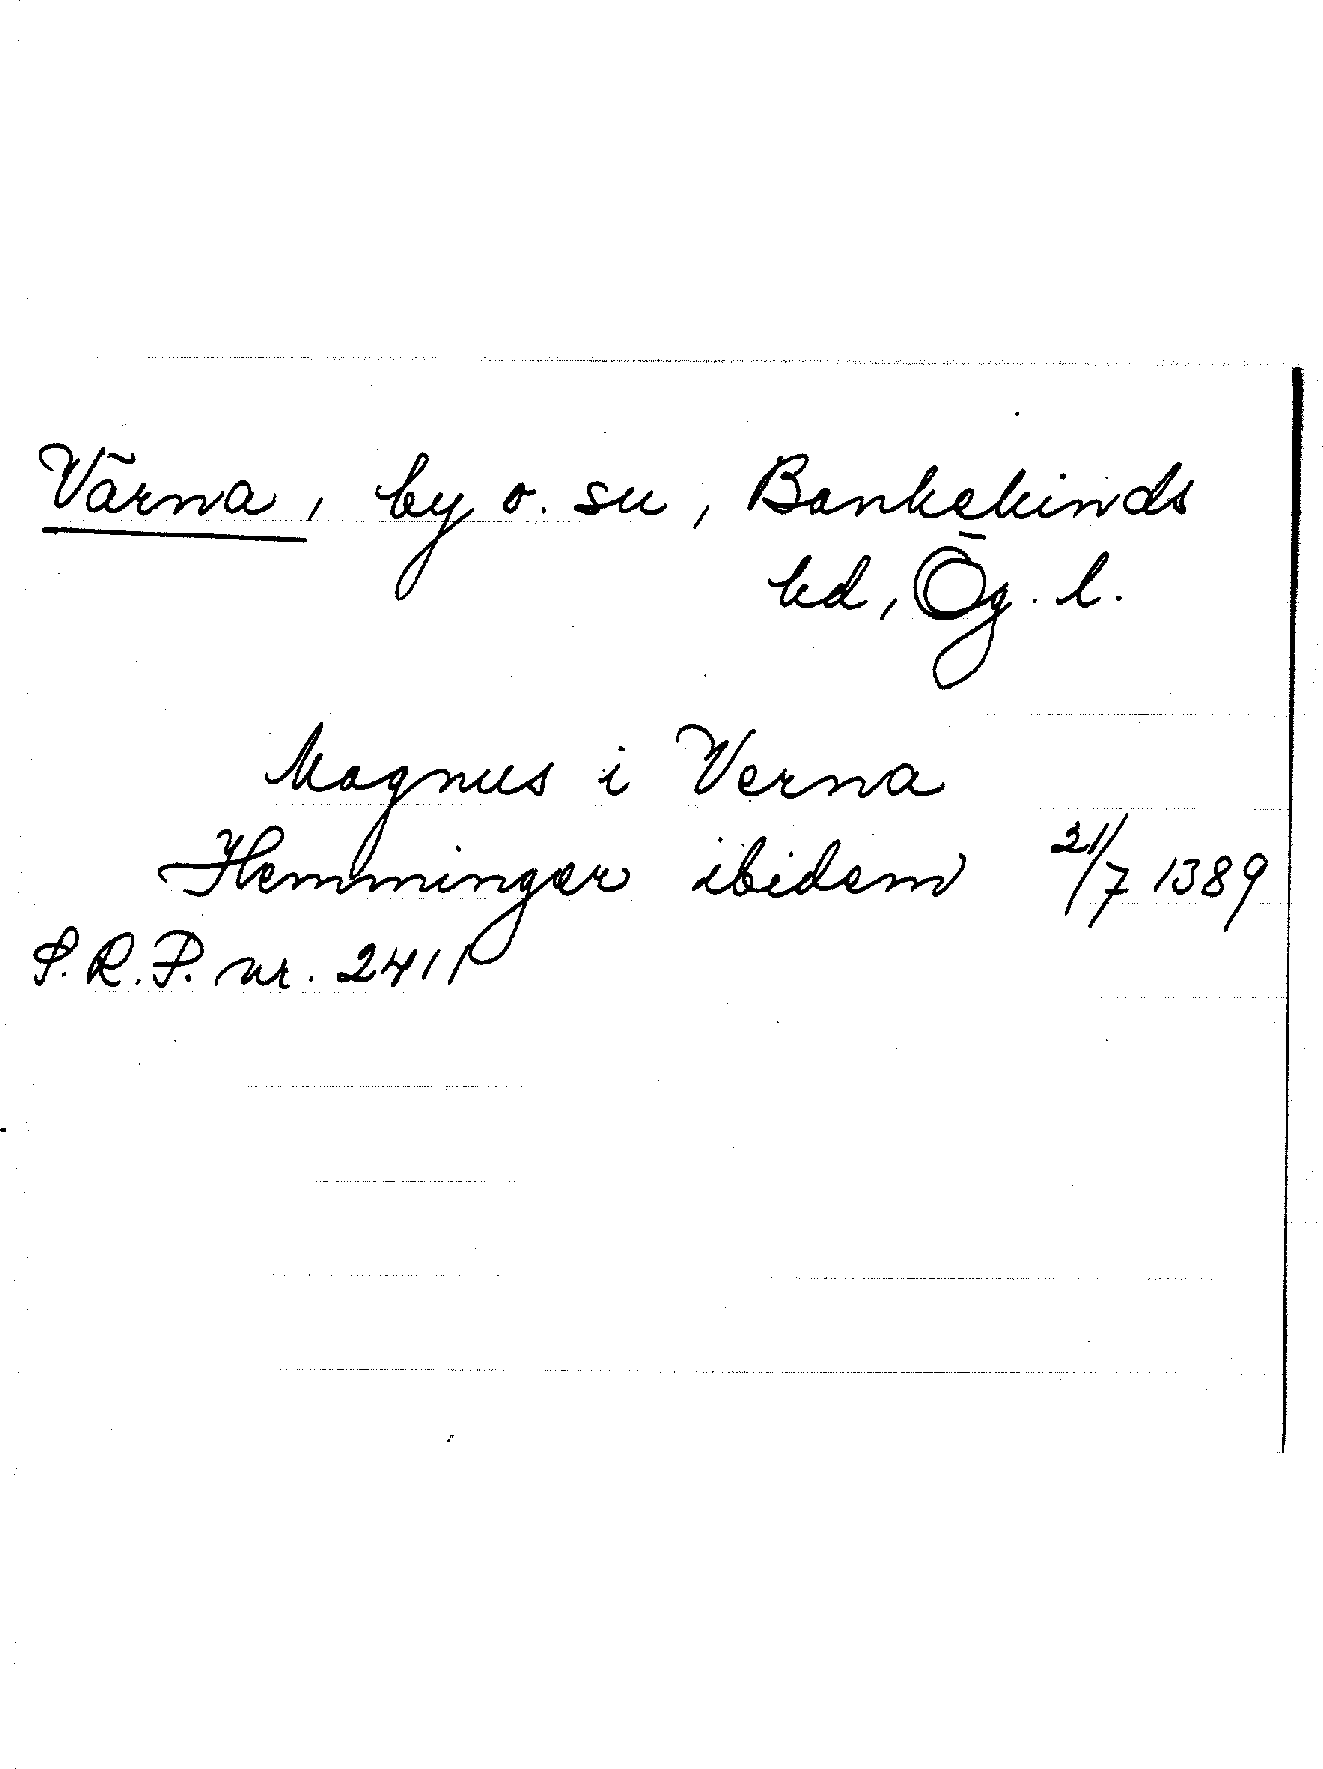 Värna, by o. sn, Bankekinds
hd, Ög. l.
Magnus i Verna
Hemminger ibidem 21/7 1389
S.R.P. nr. 2411